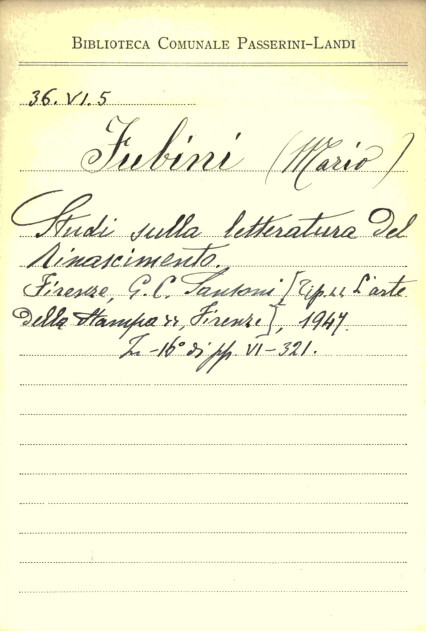 BIBLIOTECA COMUNALE PASSERINI-LANDI
36.VI.5
Fubini (Mario)
Studi sulla letteratura del
rinascimento.
Firenze, G.C. Sansoni [Tip. "L'arte
della Stampa", Firenze], 1947.
In-16° di pp. VI-321.